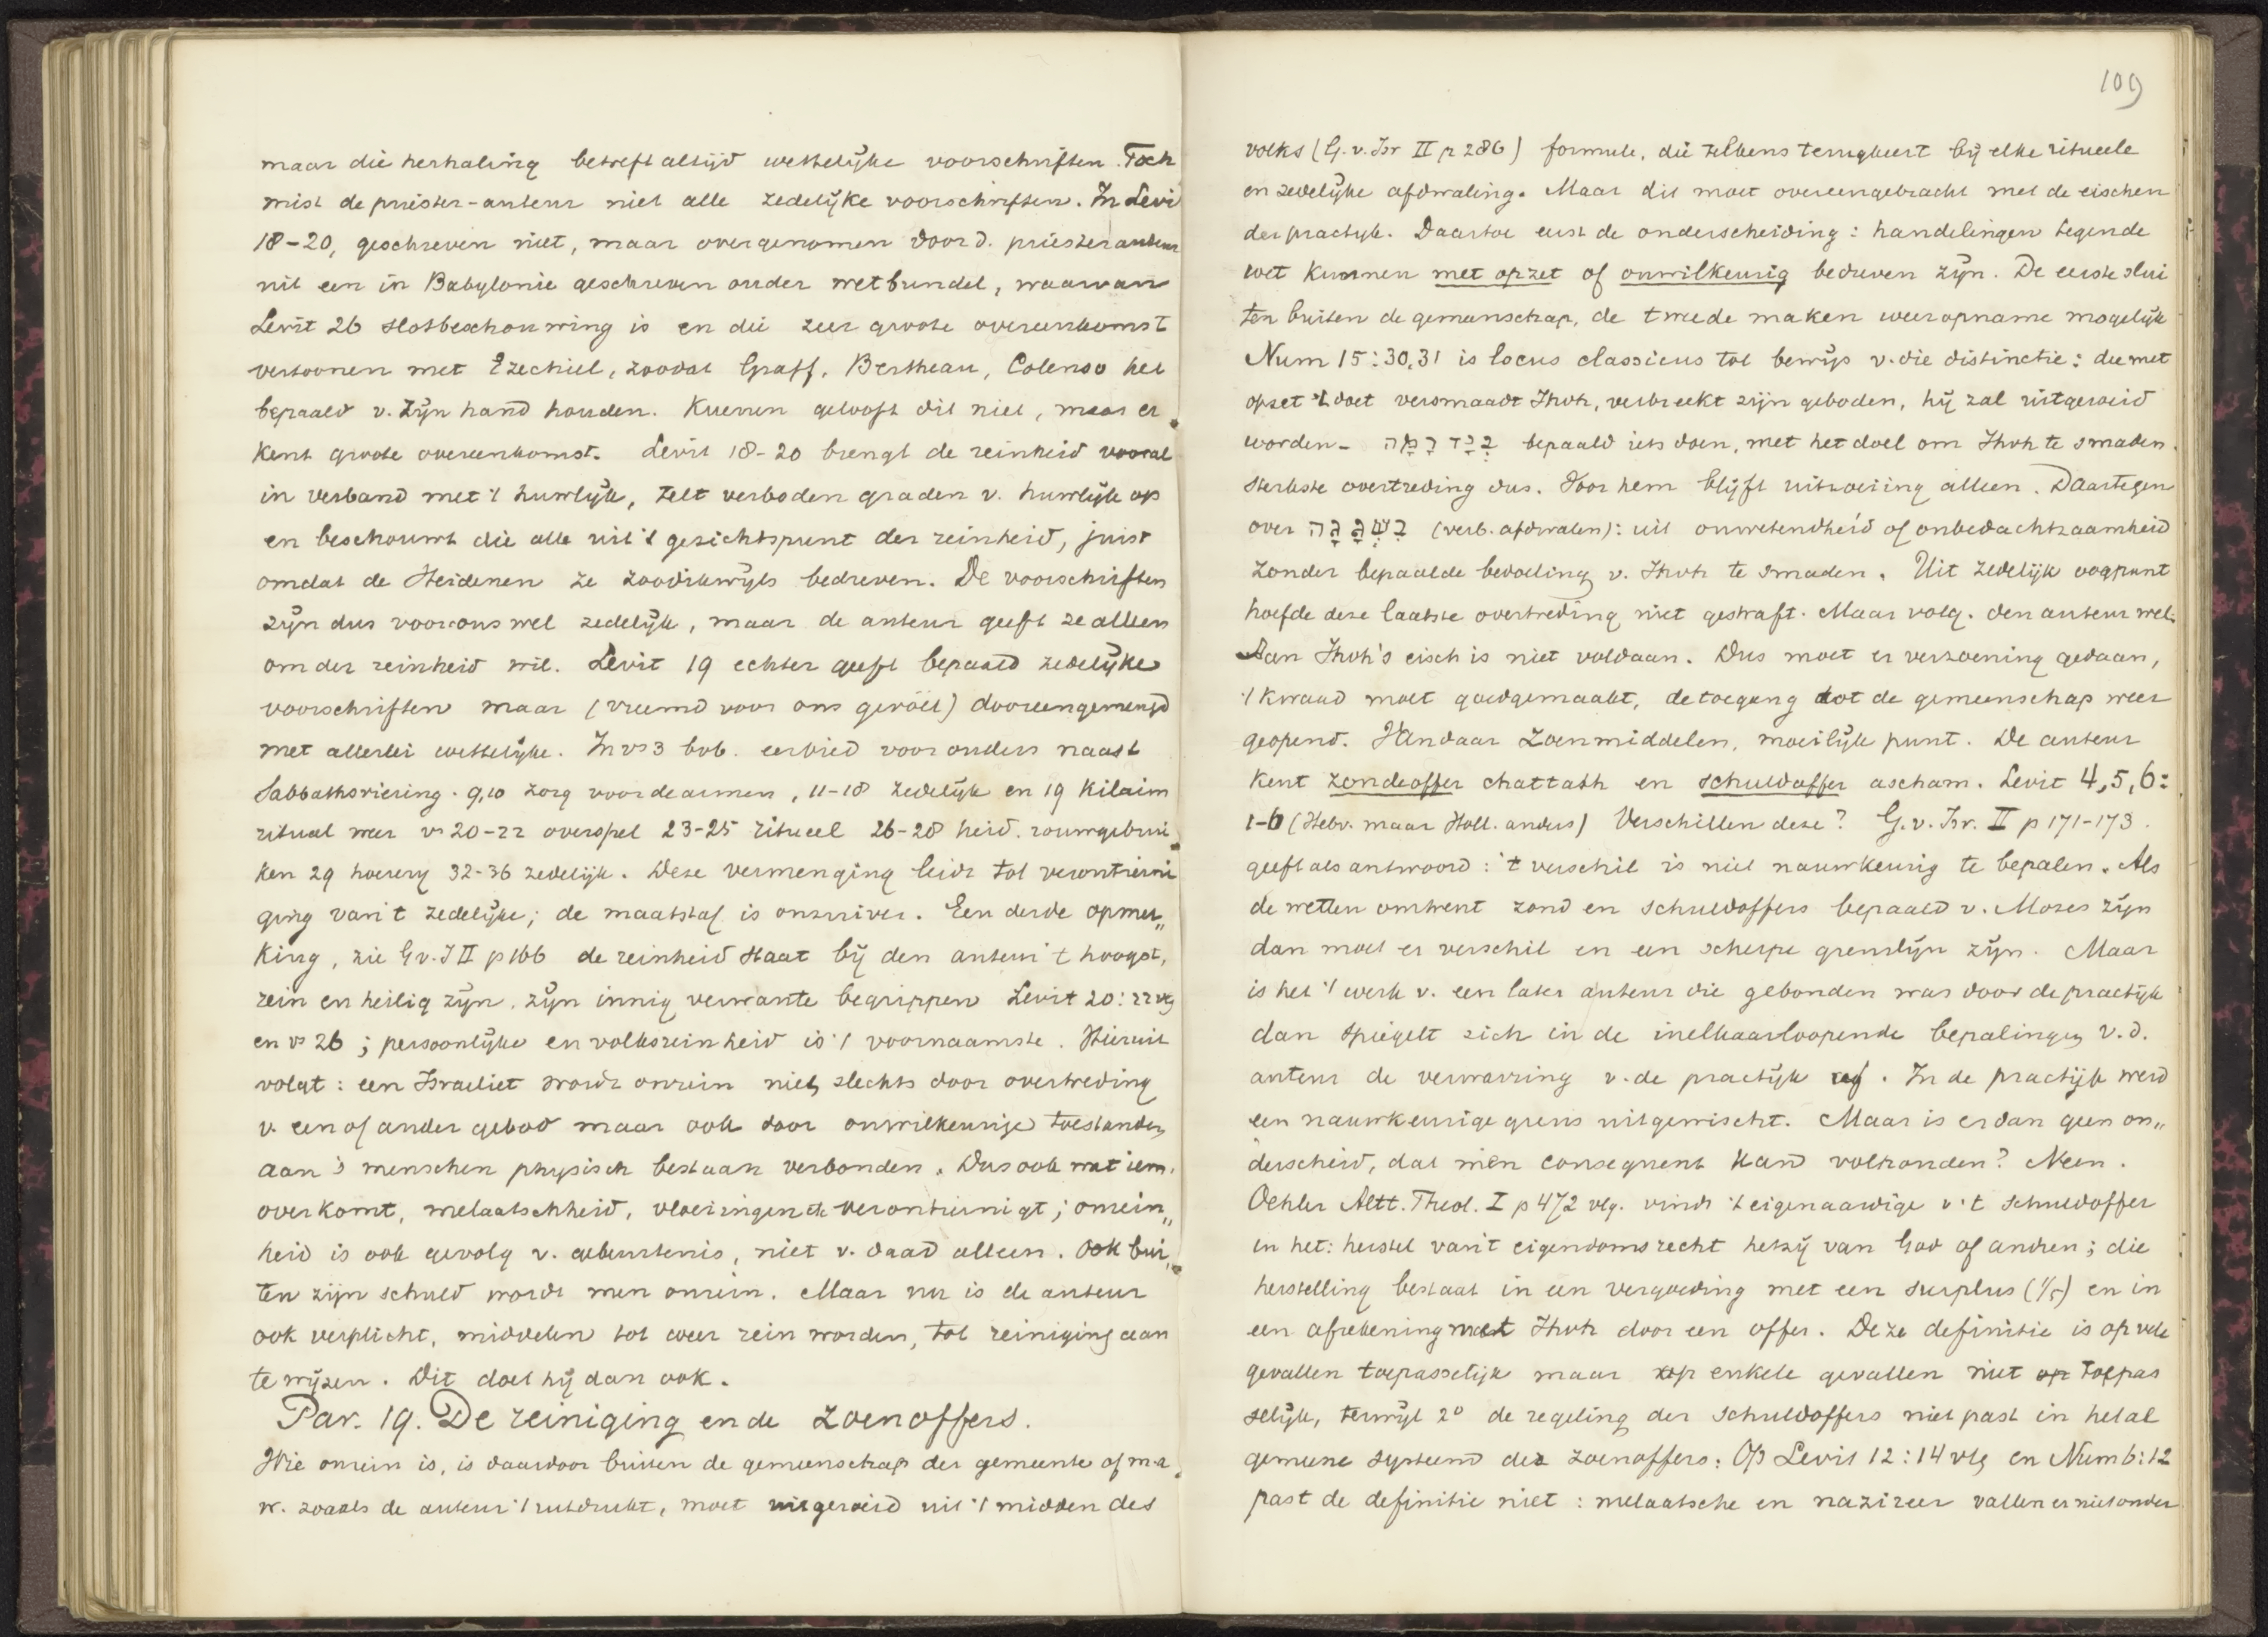 maar die herhaling betreft altijd wettelijke voorschriften. Toch
mist de priester-auteur niet alle zedelijke voorschriften. In Levi
18-20, geschreven niet, maar overgenomen door d. priesterauteur
uit een in Babylonie geschreven ouder wetbundel, waarvan
Levit 26 slotbeschouwing is en die zeer groote overeenkomst
vertoonen met Ezechiel, zoodat Graff, Bertheau, Colenso het
bepaald v. zijn hand houden. Kuenen gelooft dit niet, maar er
kent groote overeenkomst. Levit 18-20 brengt de reinheid vooral
in verband met 't huwlijk, telt verboden graden v. huwlijk op
en beschouwt die alle uit 't gezichtspunt der reinheid, juist
omdat de Heidenen ze zoodikwijls bedreven. De voorschriften
zijn dus voor ons wel zedelijk, maar de auteur geeft ze alleen
om der reinheid wil. Levit 19 echter geeft bepaald zedelijke
voorschriften maar (vreemd voor ons gevoel) dooreengemengd
met allerlei wettelijke. In vs 3 bvb. eerbied voor ouders naast
Sabbathsviering. 9,10 zorg voor de armen, 11-18 zedelijk en 19 Kilaim
ritual weer vs 20-22 overspel 23-25 ritueel 26-28 heid. rouwgebrui
ken 29 hoererij 32-36 zedelijk. Deze vermenging leidt tot verontreini
ging van 't zedelijke; de maatstaf is onzuiver. Een derde opmer„
king, zie G v. I II p 166 de reinheid staat bij den auteur 't hoogst,
rein en heilig zijn, zijn innig verwante begrippen Levit 20: 22 vlg
en vs 26; persoonlijke en volksreinheid is 't voornaamste. Hieruit
volgt: een Israeliet wordt onrein niet slechts door overtreding
v. een of ander gebod maar ook door onwilkeurige toestanden
aan 's menschen physisch bestaan verbonden. Dus ook wat iem.
overkomt, melaatschheid, vloeiingen etc verontreinigt; onrein„
heid is ook gevolg v. gebeurtenis, niet v. daad alleen. Ook bui„
ten zijn schuld wordt men onrein. Maar nu is de auteur
ook verplicht, middelen tot weer rein worden, tot reiniging aan
te wijzen. Dit doet hij dan ook.
Par. 19. De reiniging en de zoenoffers.
Wie onrein is, is daardoor buiten de gemeenschap der gemeente of m.a.
w. zooals de auteur 't uitdrukt, moet uitgeroeid uit 't midden des
109
volks (G. v. Isr II p 286) formule, die telkens terugkeert bij elke ritueele
en zedelijke afdwaling. Maar dit moet overeengebracht met de eischen
der practijk. Daartoe eerst de onderscheiding: handelingen tegen de
wet kunnen met opzet of onwilkeurig bedreven zijn. De eerste slui
ten buiten de gemeenschap, de tweede maken weeropname mogelijk
Num 15:30,31 is locus classicus tot bewijs v. die distinctie: die met
opzet 't doet versmaadt Jhvh, verbreekt zijn geboden, hij zal uitgeroeid
worden - בְּיָד רָמָה bepaald iets doen, met het doel om Jhvh te smaden.
sterkste overtreding dus. Voor hem blijft uitroeiing alleen. Daartegen
over בִּשְׁגָגָה (verb. afdwalen): uit onwetendheid of onbedachtzaamheid
zonder bepaalde bedoeling v. Jhvh te smaden. Uit zedelijk oogpunt
hoefde deze laatste overtreding niet gestraft. Maar volg. den auteur wel.
Aan Jhvh's eisch is niet voldaan. Dus moet er verzoening gedaan,
't kwaad moet goedgemaakt, de toegang tot de gemeenschap weer
geopend. Vandaar zoenmiddelen, moeilijk punt. De auteur
kent zondeoffer chattath en schuldoffer ascham. Levit 4,5,6:
1-6 (Hebr. maar Holl. anders) Verschillen deze? G. v. Isr. II p 171-173.
geeft als antwoord: 't verschil is niet nauwkeurig te bepalen. Als
de wetten omtrent zond en schuldoffers bepaald v. Mozes zijn
dan moet er verschil en een scherpe grenslijn zijn. Maar
is het 't werk v. een later auteur die gebonden was door de practijk
dan spiegelt zich in de inelkaarloopende bepalingen v. d.
auteur de verwarring v. de practijk af. In de practijk werd
een nauwkeurige grens uitgewischt. Maar is er dan geen on„
derscheid, dat men consequent kand volhouden? Neen.
Oehler Altt. Theol. I p 472 vlg. vindt 't eigenaardige v. 't schuldoffer
in het: herstel van 't eigendomsrecht hetzij van God of andren; die
herstelling bestaat in een vergoeding met een surplus (1/5) en in
een afrekening met Jhvh door een offer. Deze definitie is op vele
gevallen toepasselijk maar op enkele gevallen niet op toepas
selijk, terwijl 2º de regeling der schuldoffers niet past in het al
gemeene systeem der zoenoffers: Op Levit 12:14 vlg en Num 6:12
past de definitie niet: melaatsche en nazireer vallen er niet onder